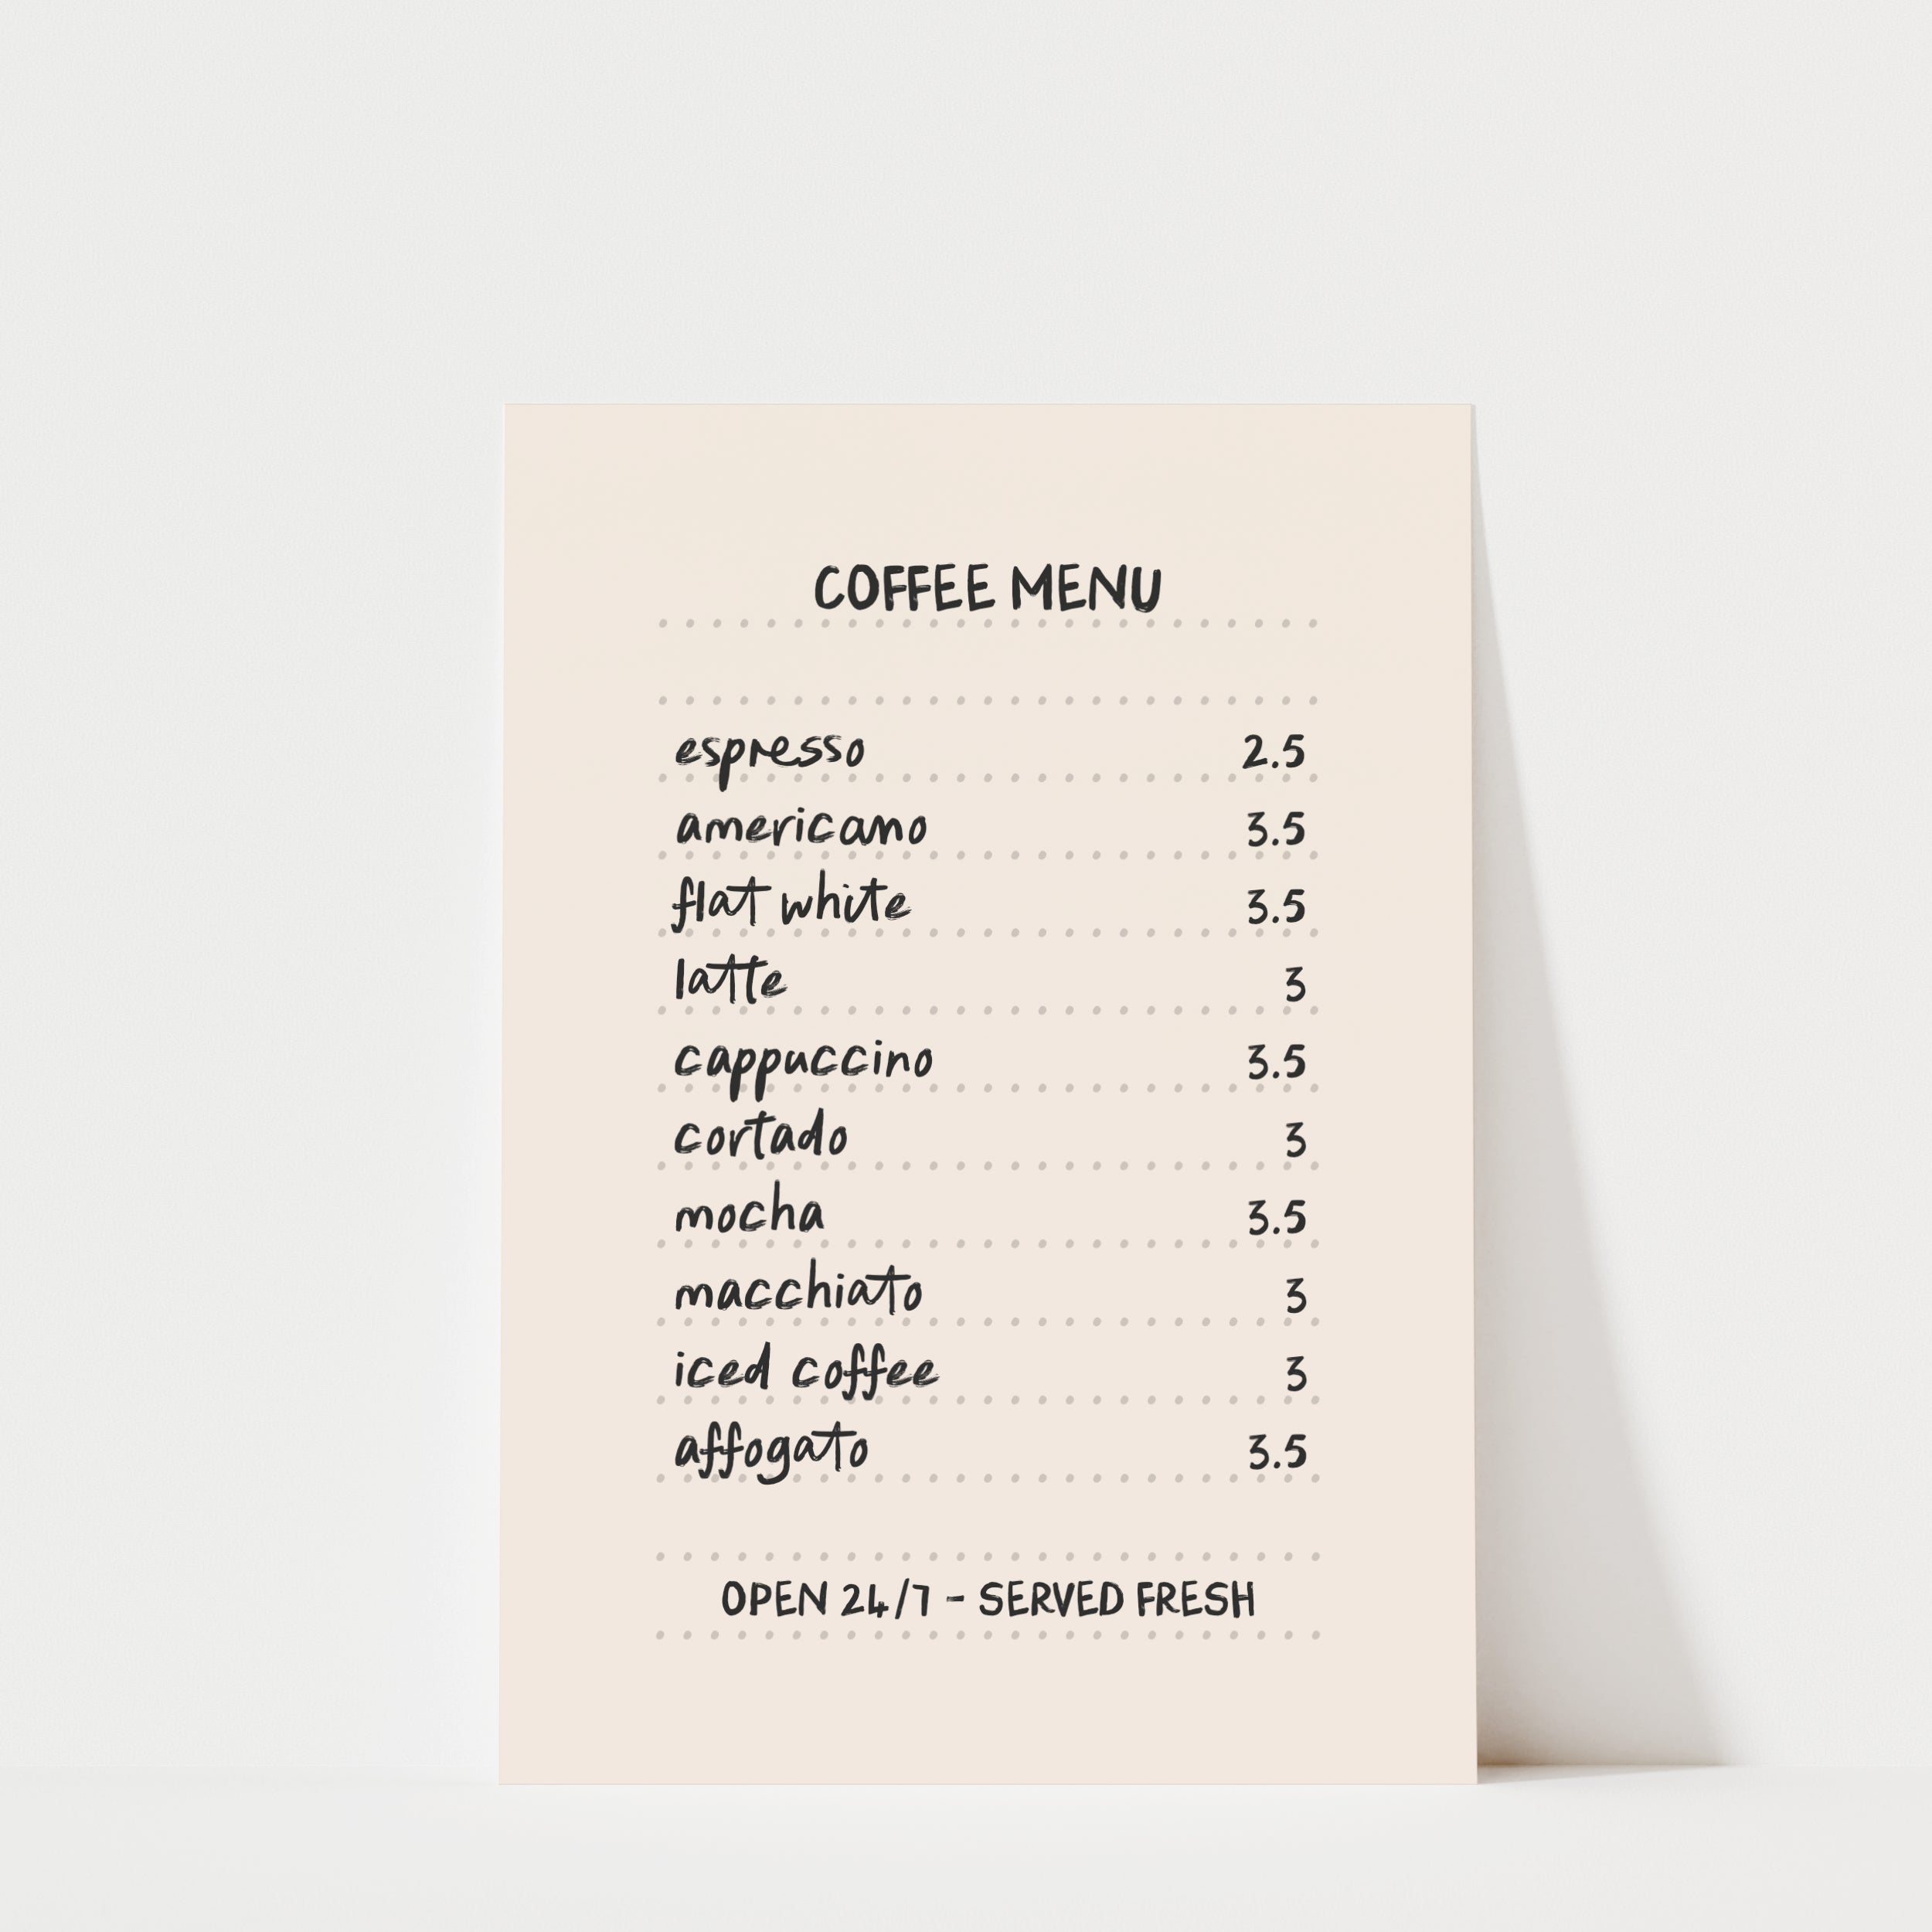 COFFEE MENU
espresso 2.5
americano 3.5
flat white 3.5
latte 3
cappuccino 3.5
cortado 3
mocha 3.5
macchiato 3
iced coffee 3
affogato 3.5
OPEN 24/7 - SERVED FRESH